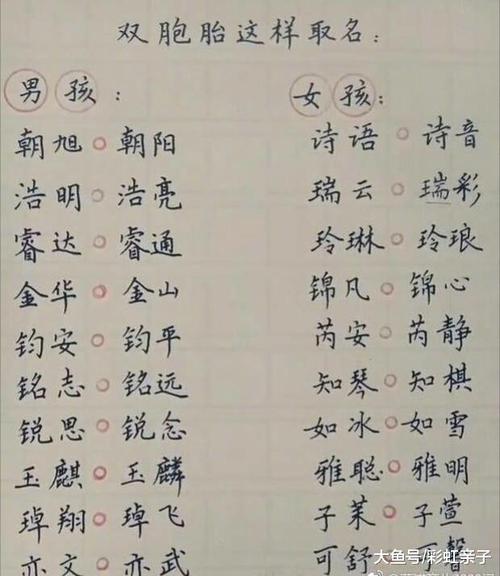 双胞胎这样取名：
男孩：
朝旭。朝阳
浩明。浩亮
睿达。睿通
金华。金山
钧安。钧平
铭志。铭远
锐思。锐念
玉麒。玉麟
琸翔。琸飞
亦文。亦武
女孩：
诗语。诗音
瑞云。瑞彩
玲琳。玲琅
锦凡。锦心
芮安。芮静
知琴。知棋
如冰。如雪
雅聪。雅明
子茉。子萱
可舒。可馨
大鱼号/彩虹亲子